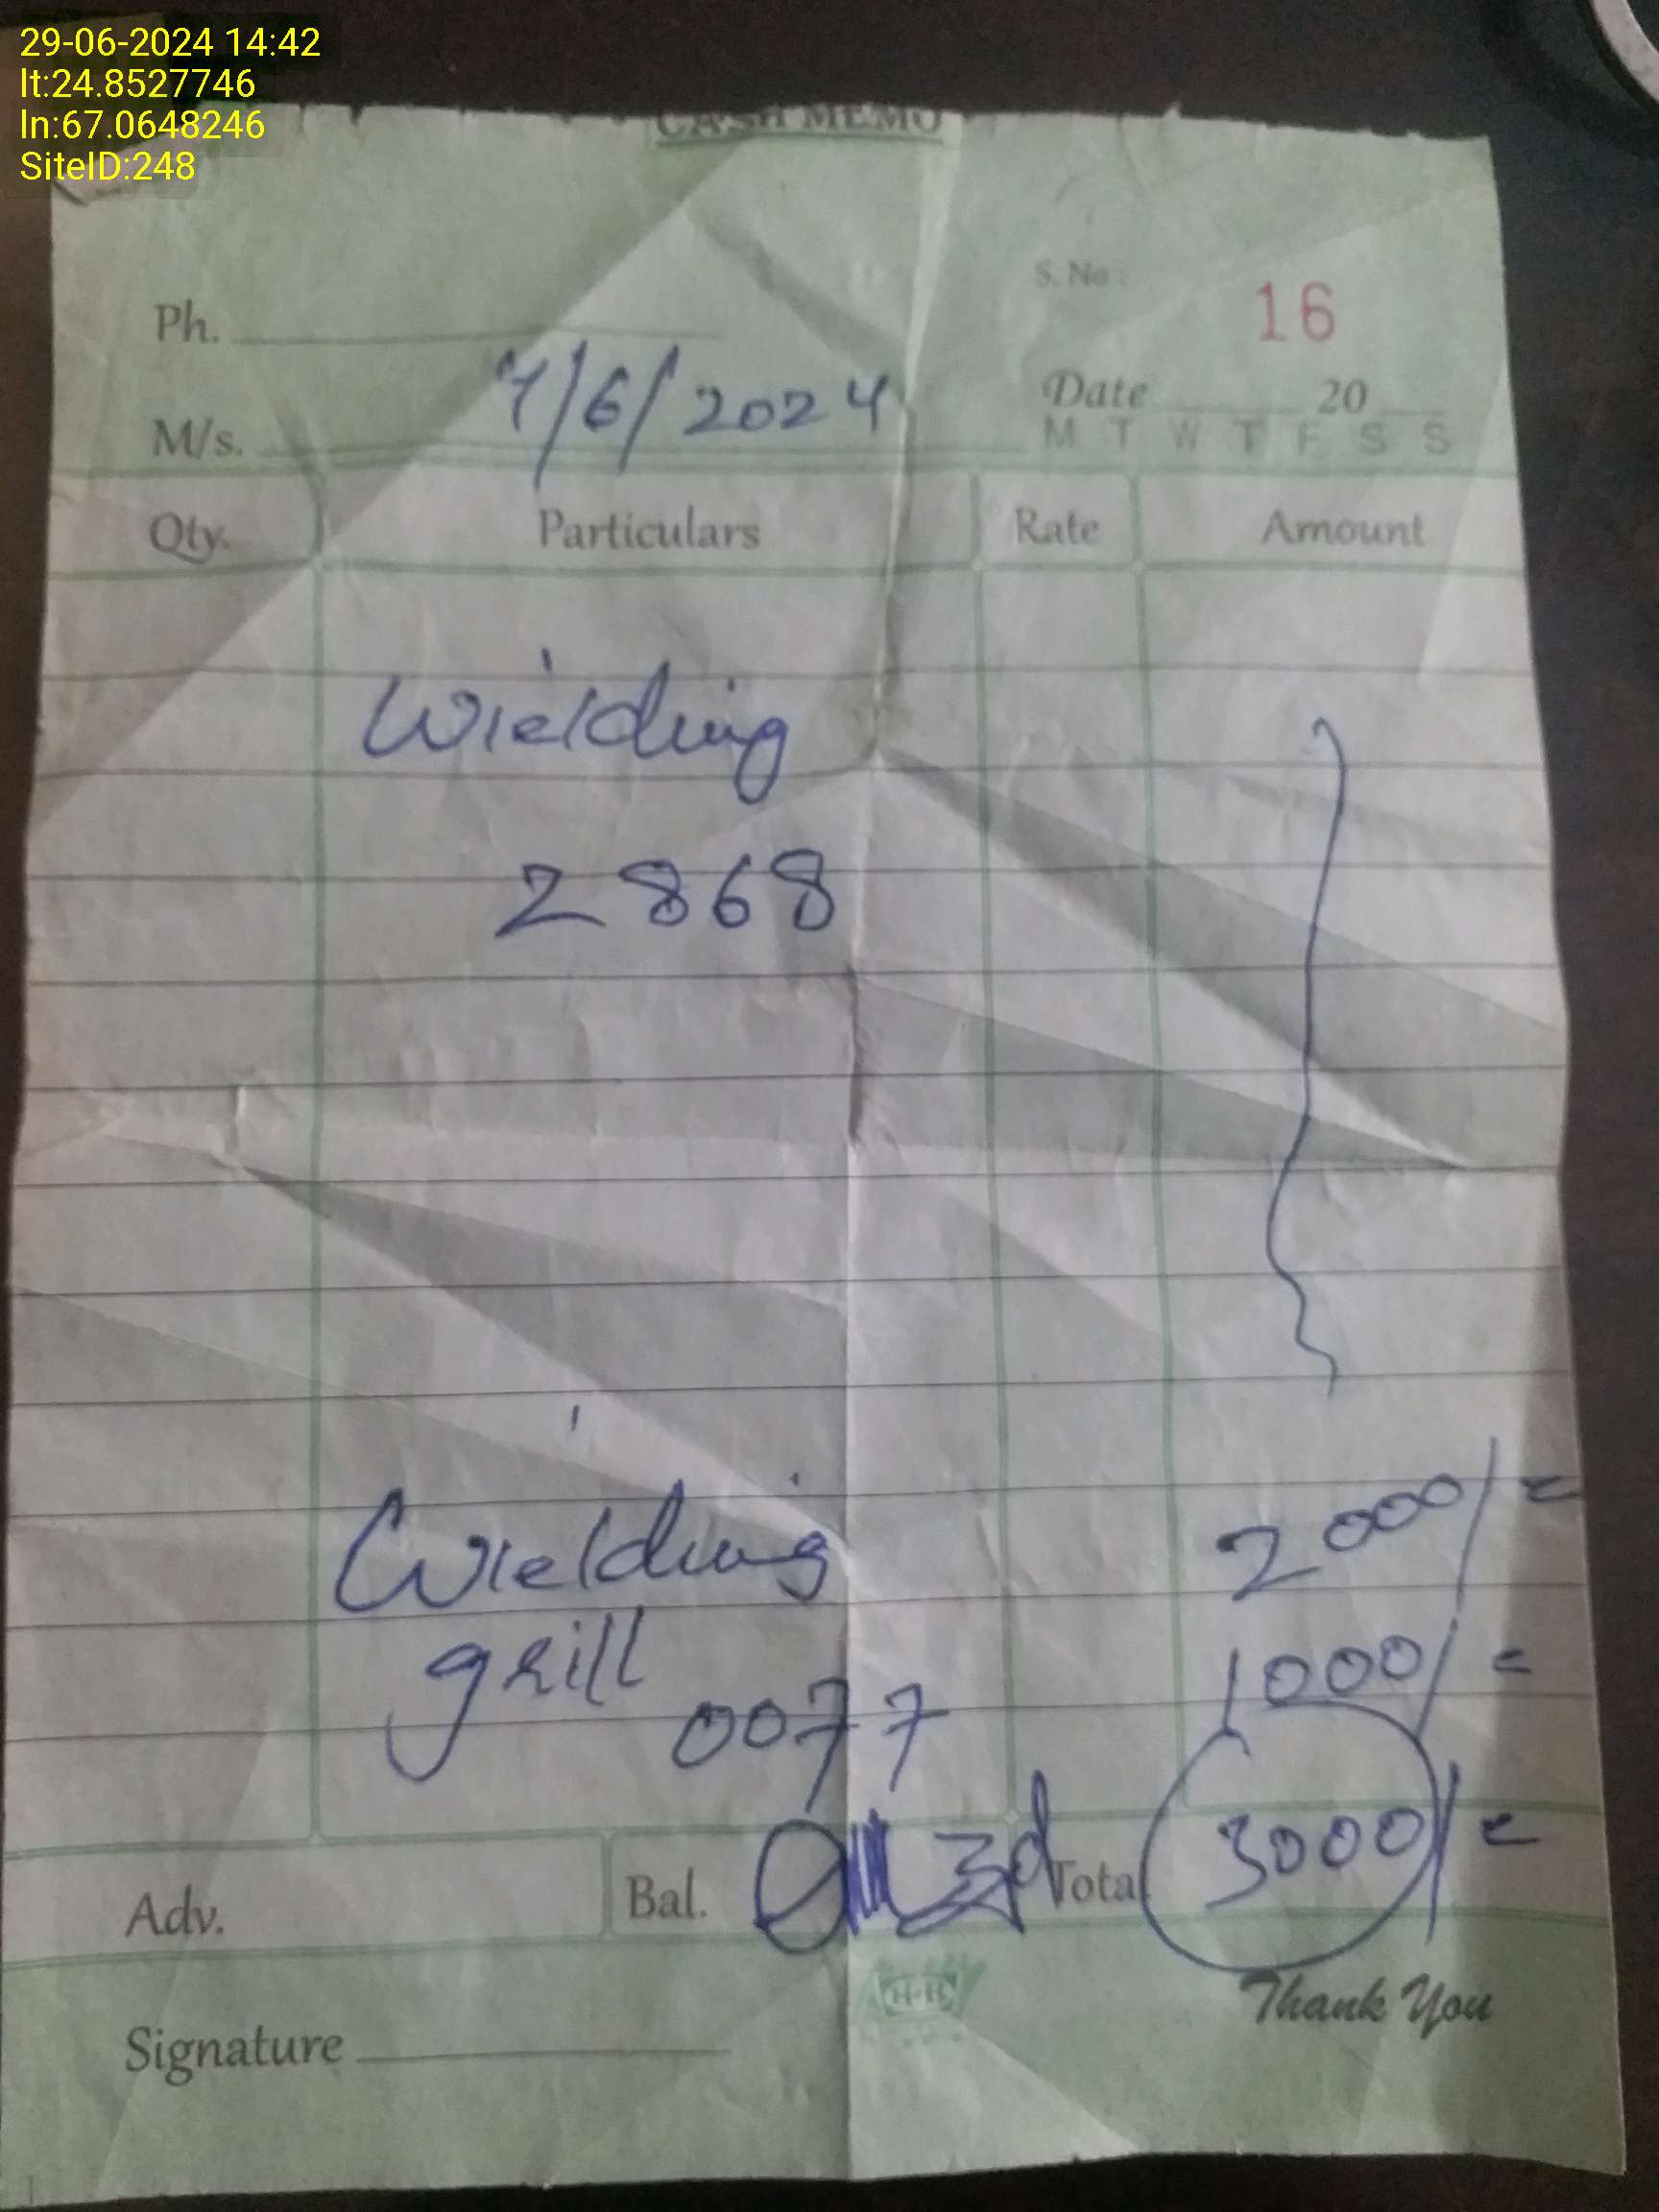 29-06-2024 14:42
lt:24.8527746
ln:67.0648246
SiteID:248
CASH MEMO
S. No :
16
Ph.
Date 20
M/s. 7/6/2024
M T W T F S S
Qty. Particulars Rate Amount
Wielding
2868
Wielding 2000/=
grill 1000/=
0077
Adv. Bal. Total 3000/=
H.R
Thank You
Signature